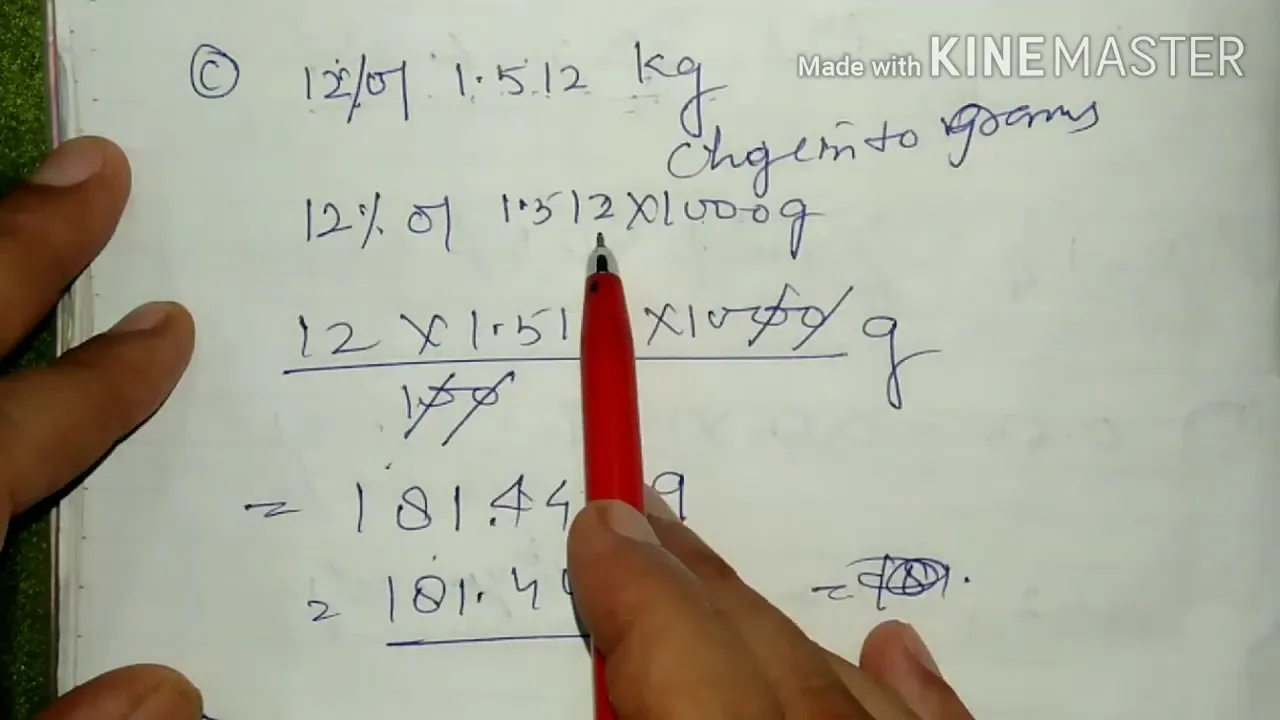 Made with KINEMASTER
© 12% of 1.512 kg
Chgein to grams
12% of 1.512 X1000g
12 X 1.51 X1000 g
100
= 181.44 g
= 181.4
=